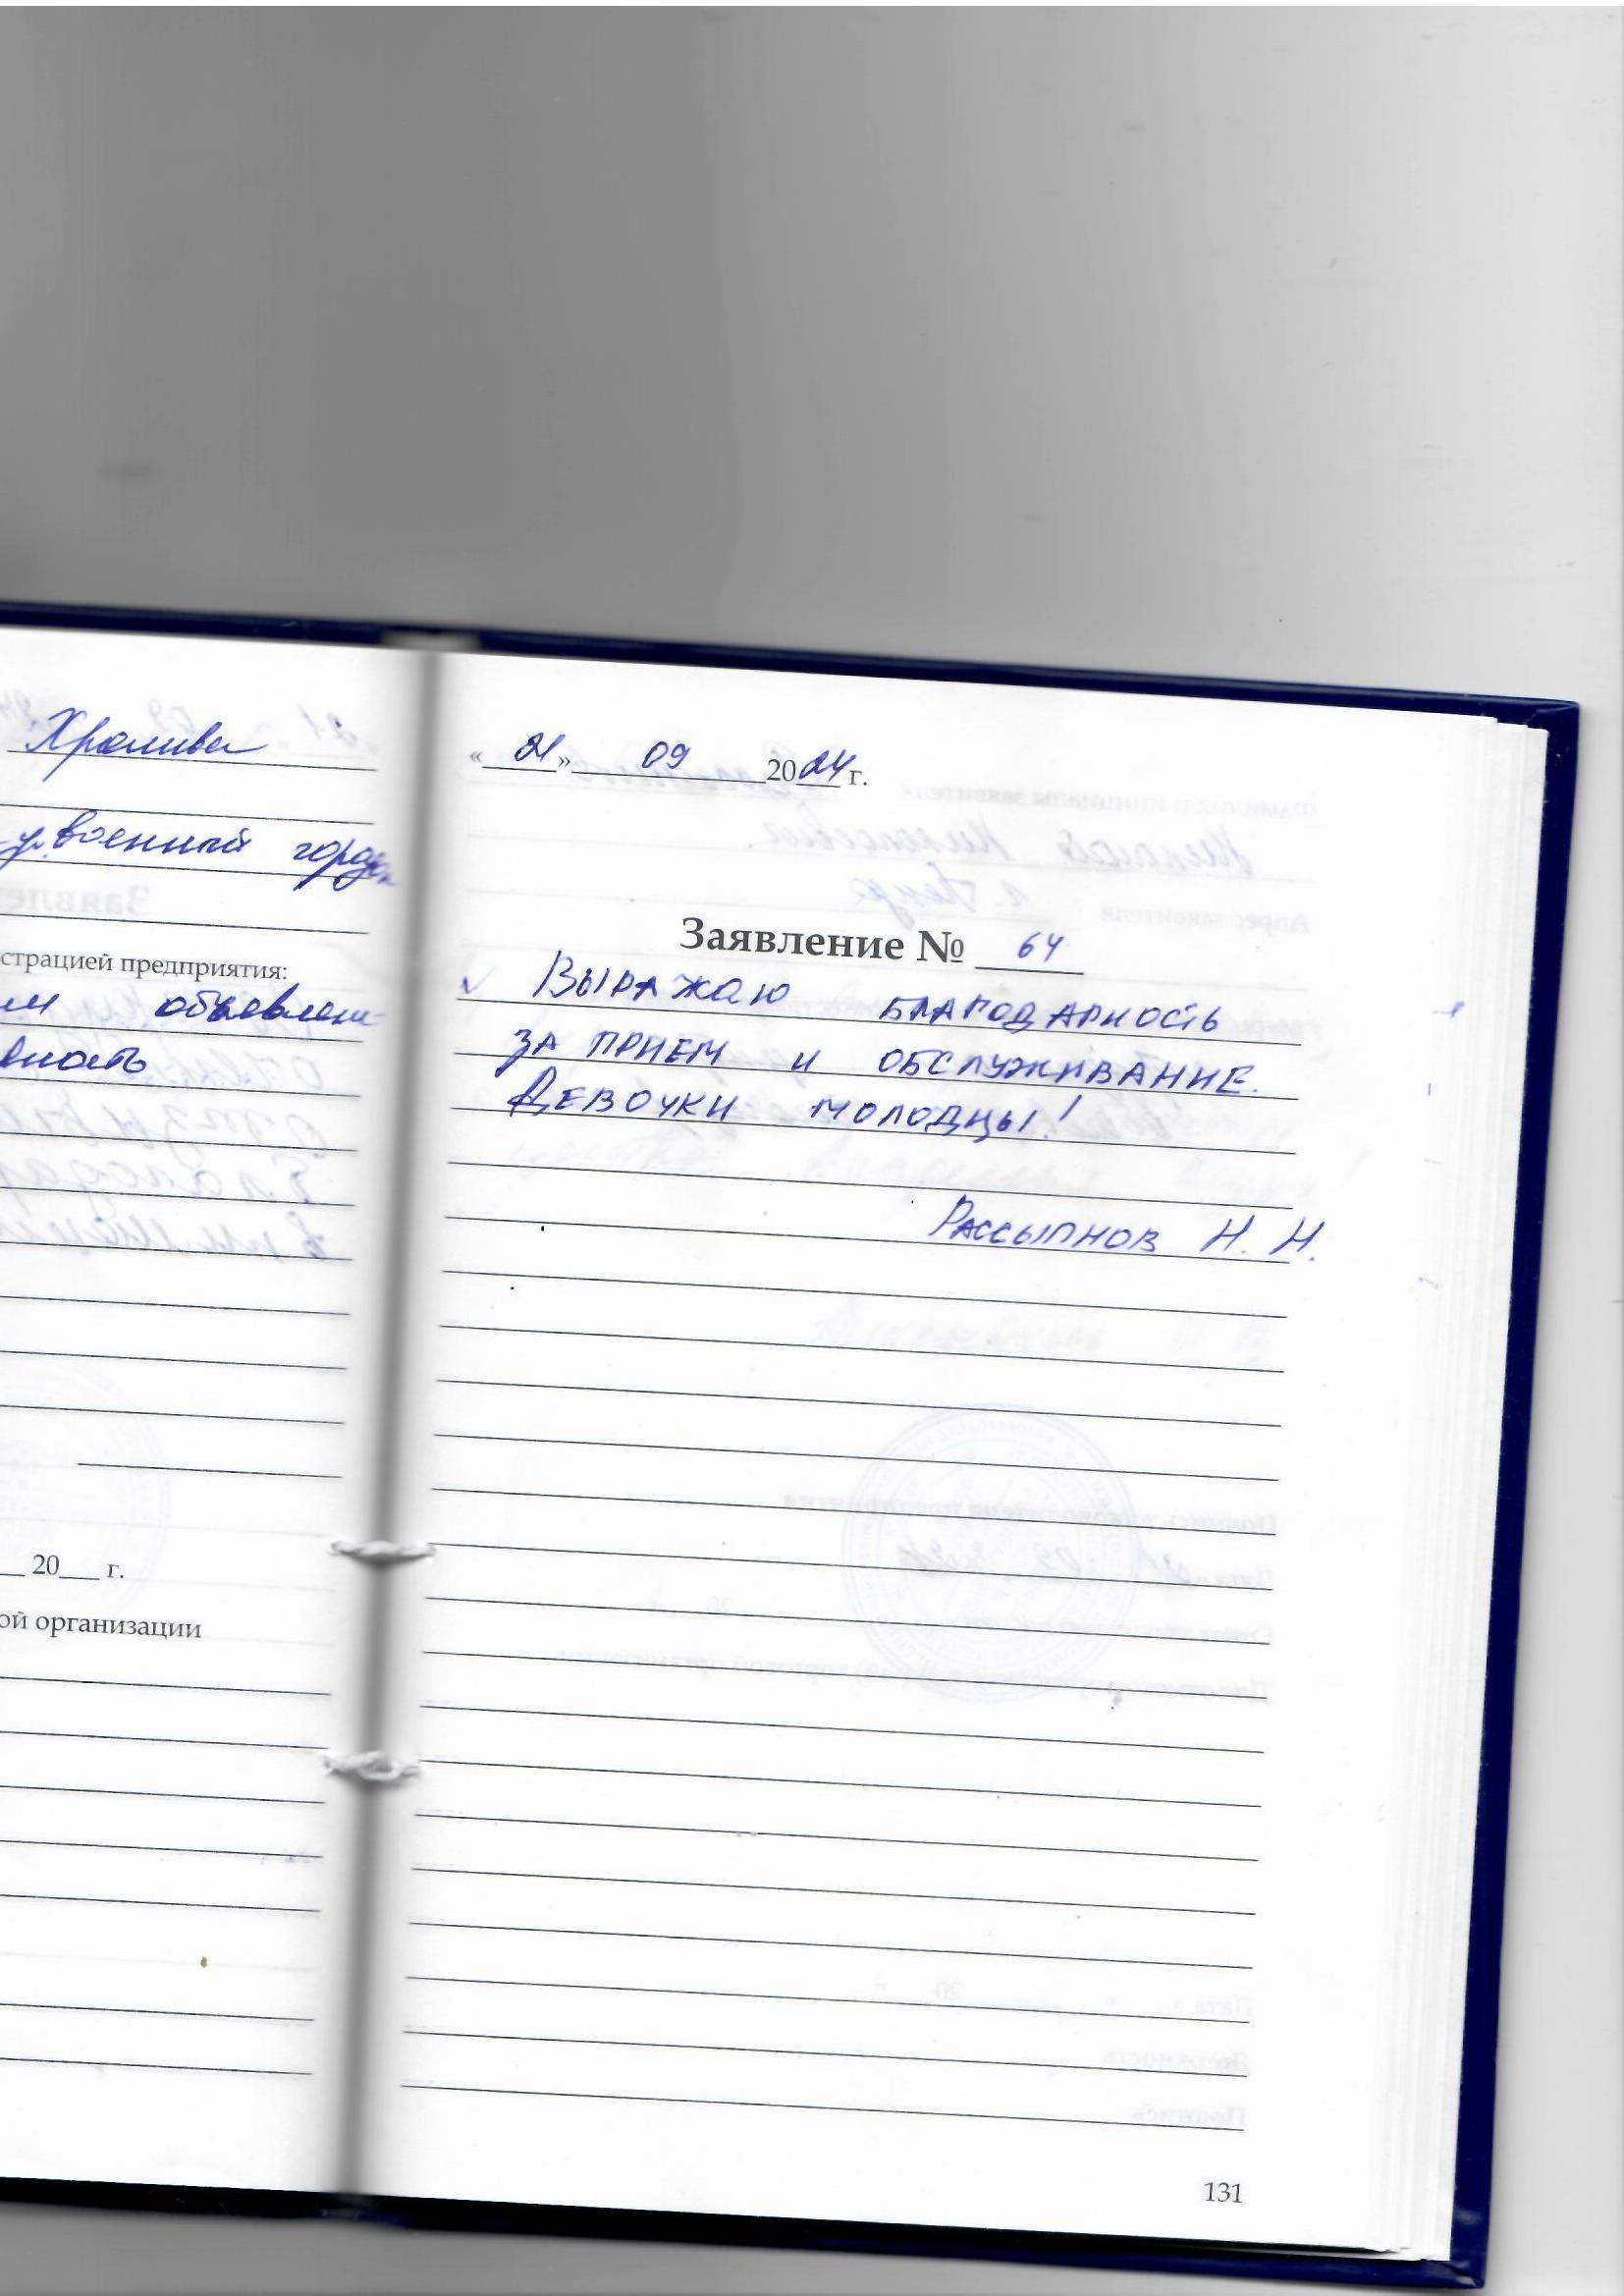 Хромива
ул. Военный городок
страцией предприятия:
объявлена
20 г.
ой организации
«21» 09 2024 г.
Заявление № 64
Выражаю благодарность
за прием и обслуживание.
Девочки молодцы!
Рассыпнов Н. Н.
131